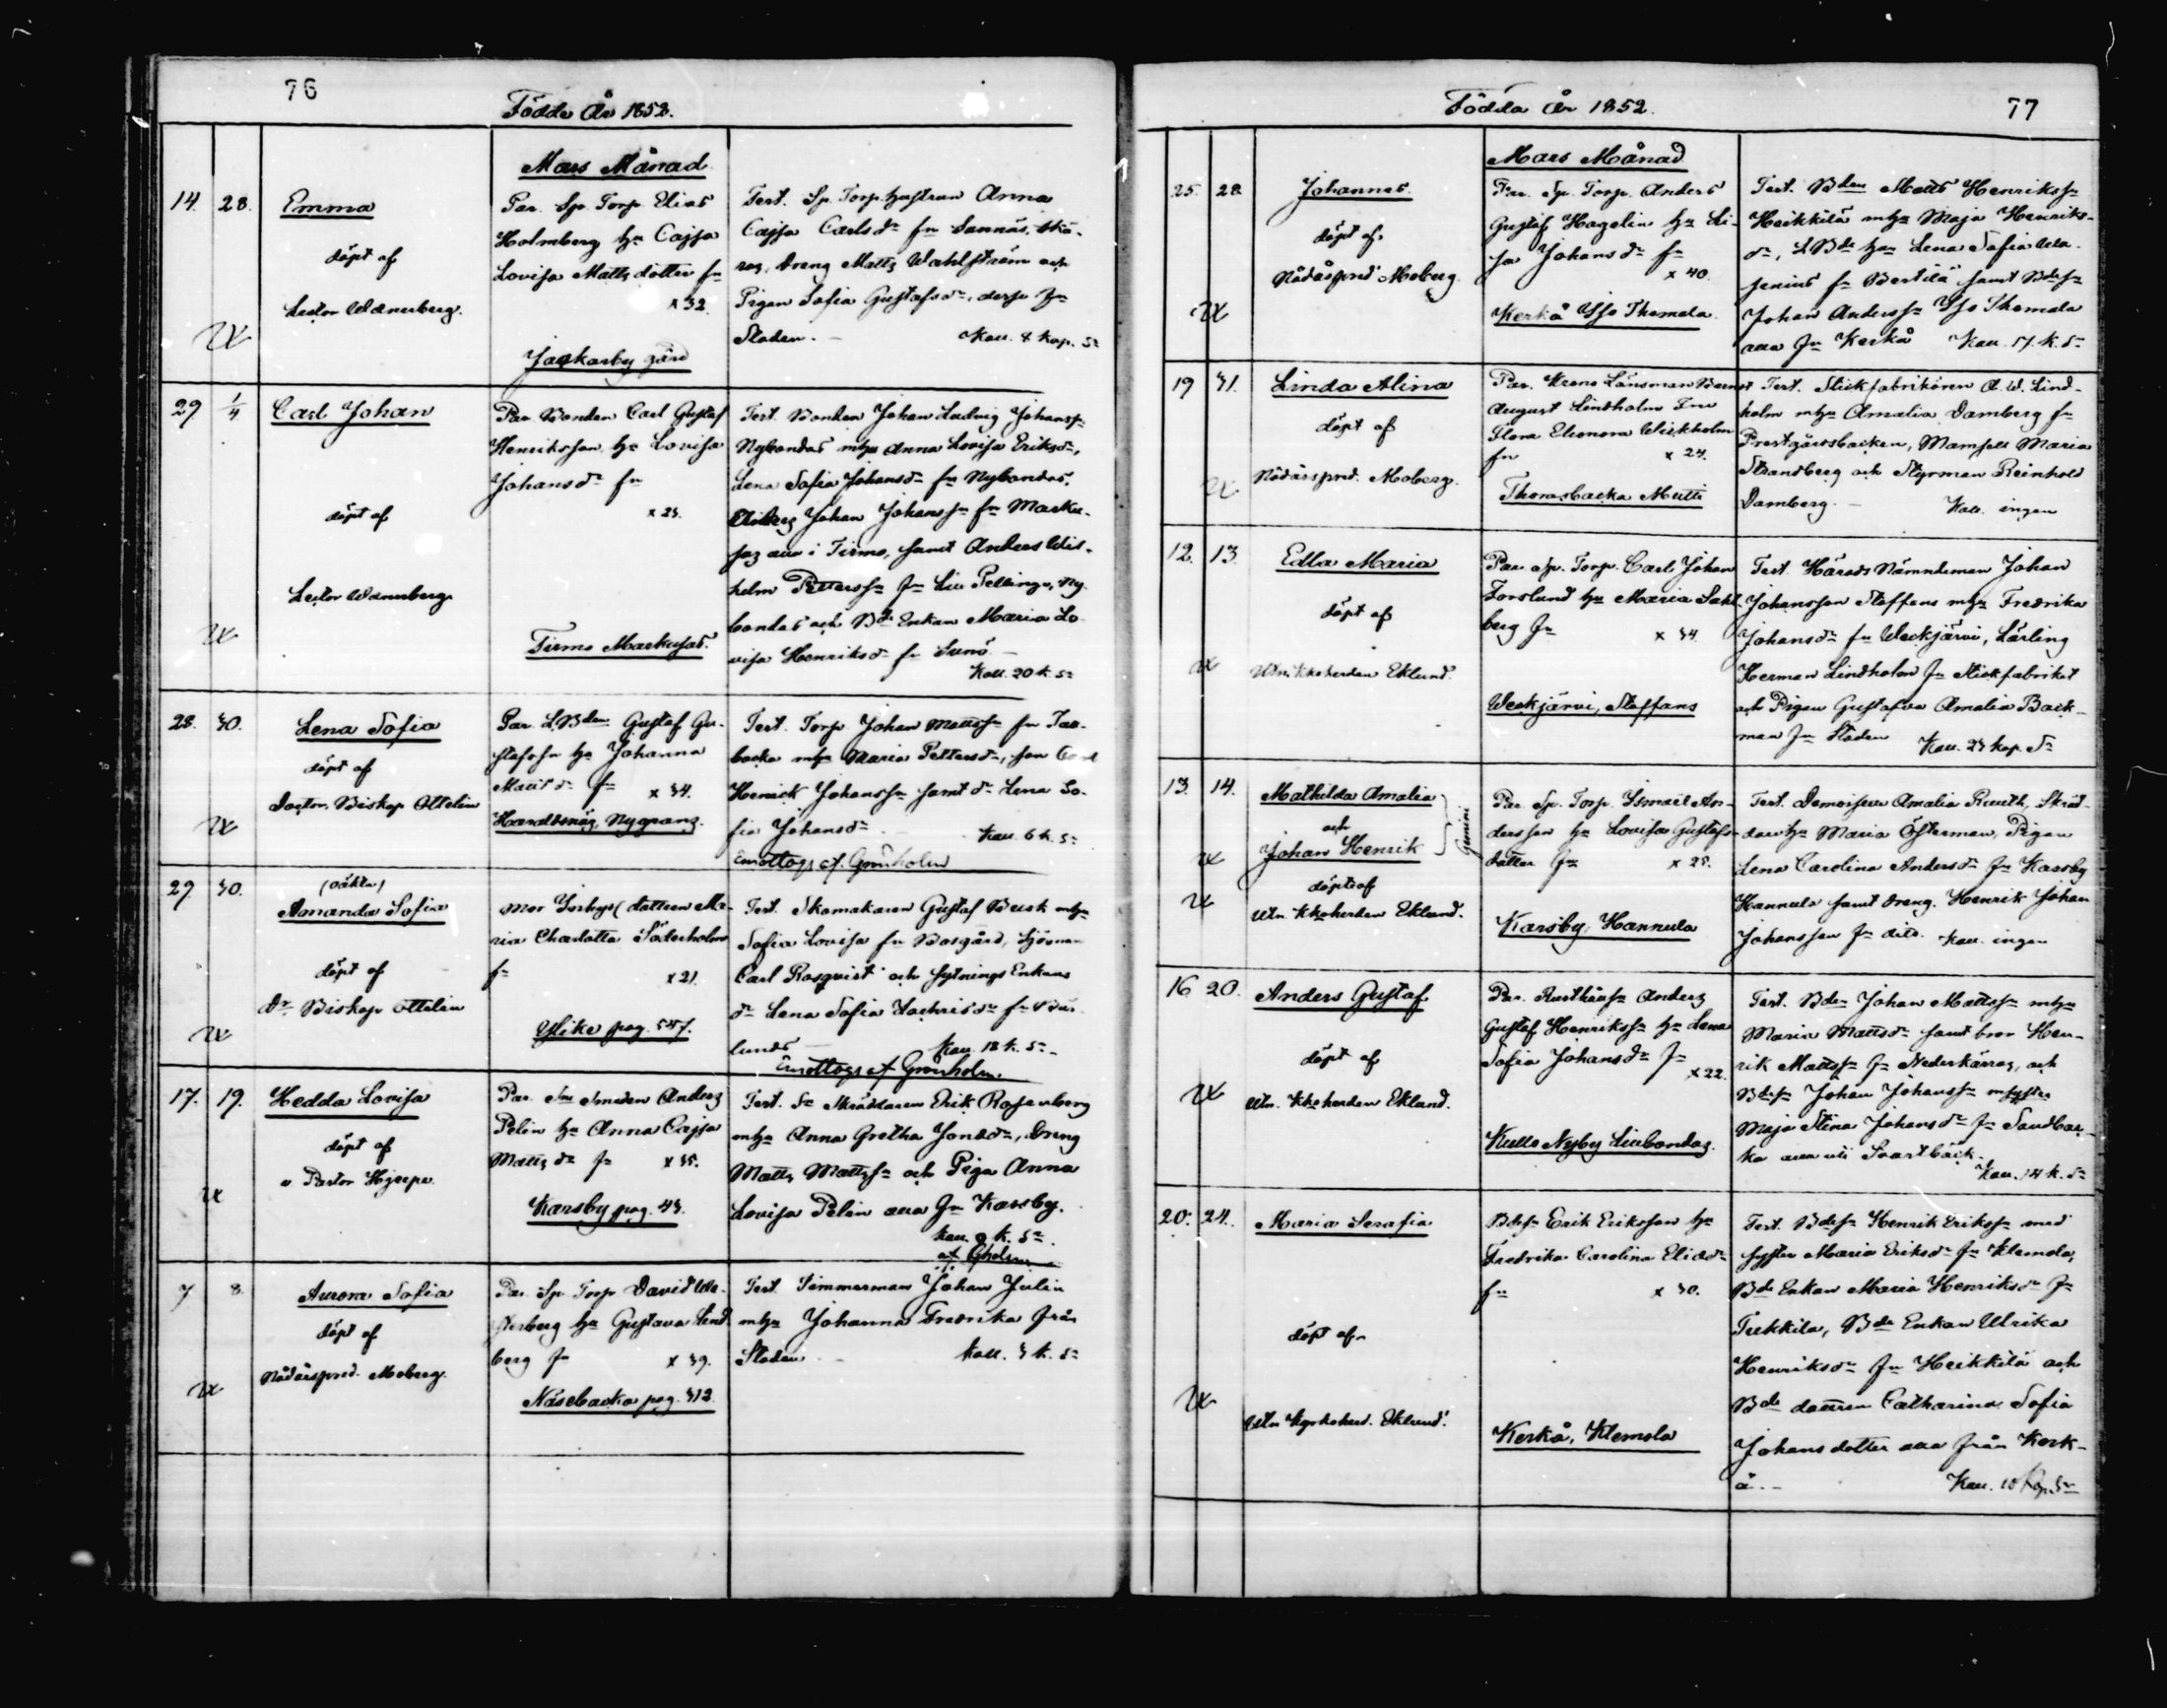 76
Födde År 1852.
Mars Månad
14. 28. Emma
döpt af
Lector Wanerberg.
Par. Sp. Torp. Elias
Holmberg hu Cajsa
Lovisa Matts dotter fr
x 32.
Jackarby gård
Test. Sp. Torp. hustrun Anna
Cajsa Carlsdr fr Sannäs,
Dreng Matts Wahlström och
Pigan Sofia Gustafsdr,
Staden. Koll. 8 kop. Sr
29 1/4 Carl Johan
döpt af
Lector Wanerberg
Par. Bonden Carl Gustaf
Henriksson hu Lovisa
Johansdr fr
x 23.
Tirmo Markusas.
Test. Bonden Johan Ludvig Johanss
Nybondas mhu Anna Lovisa Eriksdr,
Lena Sofia Johansdr fr Nybondas,
Johan Johanss fr Marku-
sas i Tirmo, samt Anders Wil-
helm Petterss fr Lill Pellinge, Ny-
bondas och Bde Enkan Maria Lo-
visa Henriksdr fr Sunö
Koll. 20 k. Sr
28. 30. Lena Sofia
döpt af
Doctor Biskop Ottelin
Par. LBden Gustaf Gu-
stafssn hu Johanna
Mattsdr fr x 34.
Haraldsnäs, Nygrans.
Test. Torp Johan Mattss fr Tall-
backa mhu Maria Pettersdr, son Carl
Henrick Johanss samt dr Lena So-
fia Johansdr Koll. 6 k. Sr
Emottogs af Grönholm
29 30. (oäkta)
Amanda Sofia
döpt af
Dr Biskop Ottelin
Mor Inhys dottren Ma-
ria Charlotta Söderholm
fr x 21.
Ylike pag. 547.
Test. Skomakaren Gustaf Busk mhu
Sofia Lovisa fr Bosgård, Sjöman
Carl Rosqvist och Sytnings Enkans
dr Lena Sofia Zachrisdr fr
lunds Koll. 18 k. Sr
Emottogs af Grönholm.
17. 19. Hedda Lovisa
döpt af
v Pastor Hjerpe
Par. Smeden Anders
Pelin hu Anna Cajsa
Mattsdr fr x 35.
Karsby pag. 43.
Test. Skräddaren Erik Rosenberg
mhu Anna Gretha Jonasdr, Dreng
Matts Mattss och Piga Anna
Lovisa Pelin alla fr Karsby.
Koll. 9 k. Sr.
af Gholm.
7 8. Aurora Sofia
döpt af
Nådårspred. Moberg.
Par. Sp Torp David We-
sterberg hu Gustava Lind
berg fr x 39.
Näsebacka pag. 312.
Test. Timmerman Johan Julin
mhu Johanna Fredrika från
Staden. Koll. 3 k. Sr
Födda År 1852. 77
Mars Månad
25. 28. Johannes
döpt af
Nådårspred Moberg
Par. Sp. Torp. Anders
Gustaf Hagelin hu Li-
sa Johansdr fr
x 40.
Kerkå Yso Thomala
Test. Bden Matts Henrikss
Heikkilä mhu Maja Henriks-
dr, LBde hu Lena Sofia Wla-
senius fr Bertilä samt Bdes
Johan Anderss Yso Thomala
alla fr Kerkå Koll. 17. k. Sr
19 31. Linda Alina
döpt af
Nådårspred. Moberg.
Par. Krono Länsman Bernt
August Lindholm Fru
Flora Eleonora Wickholm
fr x 24.
Thorasbacka Mutti
Test. Stickfabrikören A. W. Lind-
holm mhu Amalia Damberg fr
Prestgårdsbacken, Mamsell Maria
Strandberg och Styrman Reinhold
Damberg. Koll. ingen
12. 13. Edla Maria
döpt af
Utn. Kkoherden Eklund.
Par Sp. Torp. Carl Johan
Forslund hu Maria Sahl-
berg fr x 34.
Weckjärvi, Staffans
Test. Härads Nämndeman Johan
Johansson Staffans mhu Fredrika
Johansdr fr Weckjärvi, Lärling
Herman Lindholm fr Stickfabriket
och Pigan Gustafva Amalia Back-
man fr Staden Koll. 23 kop. Sr
13. 14. Mathilda Amalia
och
Johan Henrik
Gemini
döpte af
Utn. Kkoherden Eklund.
Par. Sp. Torp. Ismael An-
dersson hu Lovisa Gustafs-
dotter fr x 28.
Karsby, Hannula
Test. Demoiselle Amalia Ruuth, Skräd-
dare hu Maria Österman, Pigan
Lena Carolina Andersdr fr Karsby
Hannula samt Dreng. Henrik Johan
Johansson fr dito. Koll. ingen
16 20. Anders Gustaf
döpt af
Utn. Kkoherden Eklund.
Par. Rusthålls Anders
Gustaf Henrikss hu Lena
Sofia Johansdr fr
x 22.
Kullo Nyby Lillbondas
Test. Bden Johan Mattss mhu
Maria Mattsdr samt bror Hen-
rik Mattss fr Nederkärras, och
Bdes Johan Johanss m syster
Maja Stina Johansdr fr Sandbac-
ka alla uti Svartbäck.
Koll. 14 k. Sr
20. 24. Maria Serafia
döpt af
Utn Kyrkoherd. Eklund.
Bdes Erik Eriksson hu
Fredrika Carolina Eliædr
fr x 30.
Kerkå, Klemola
Test. Bdes Henrik Erikss med
syster Maria Eriksdr fr Klemola,
Bde Enkan Maria Henriksdr fr
Tirkkila, Bde Enkan Ulrika
Henriksdr fr Heikkilä och
Bde dottren Catharina Sofia
Johans dotter alla från Kerk-
å. Koll. 10 Kop. Sr